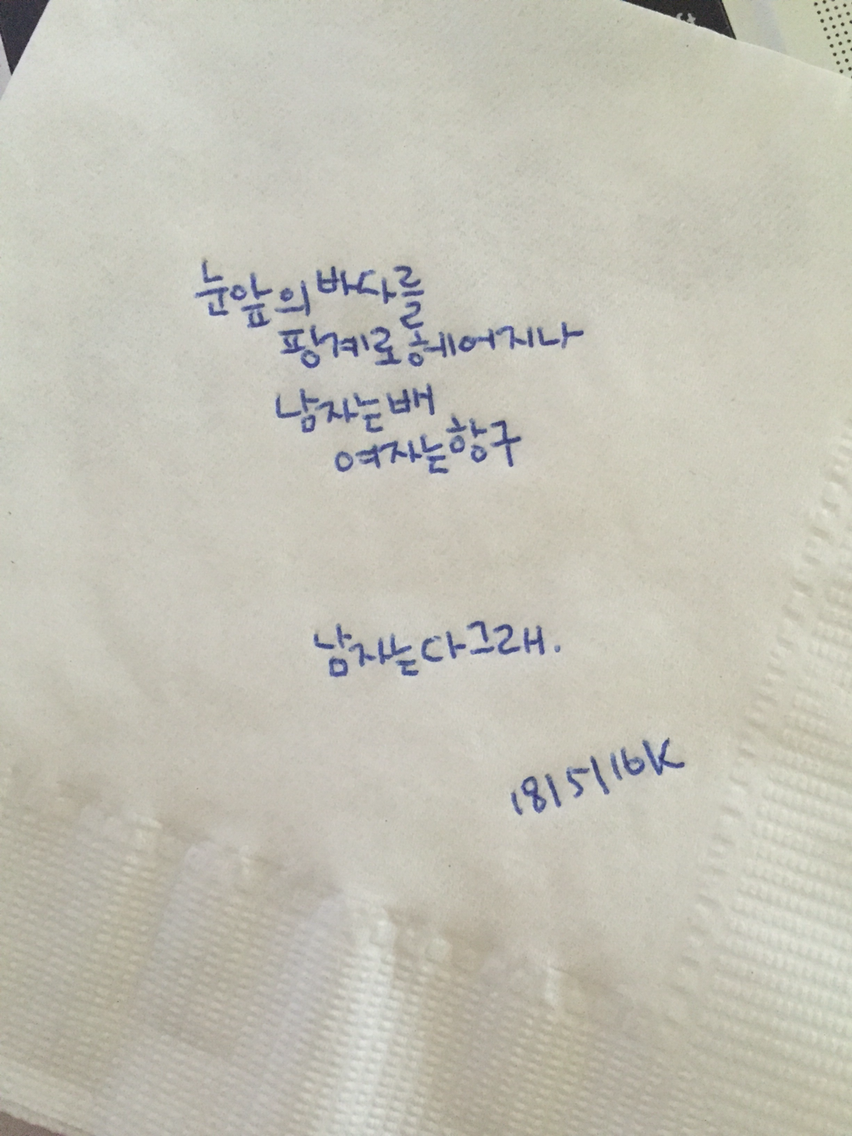 눈앞의 바다를
핑계로 헤어지나
남자는 배
여자는 항구
남자는 다 그래.
18/5/16K